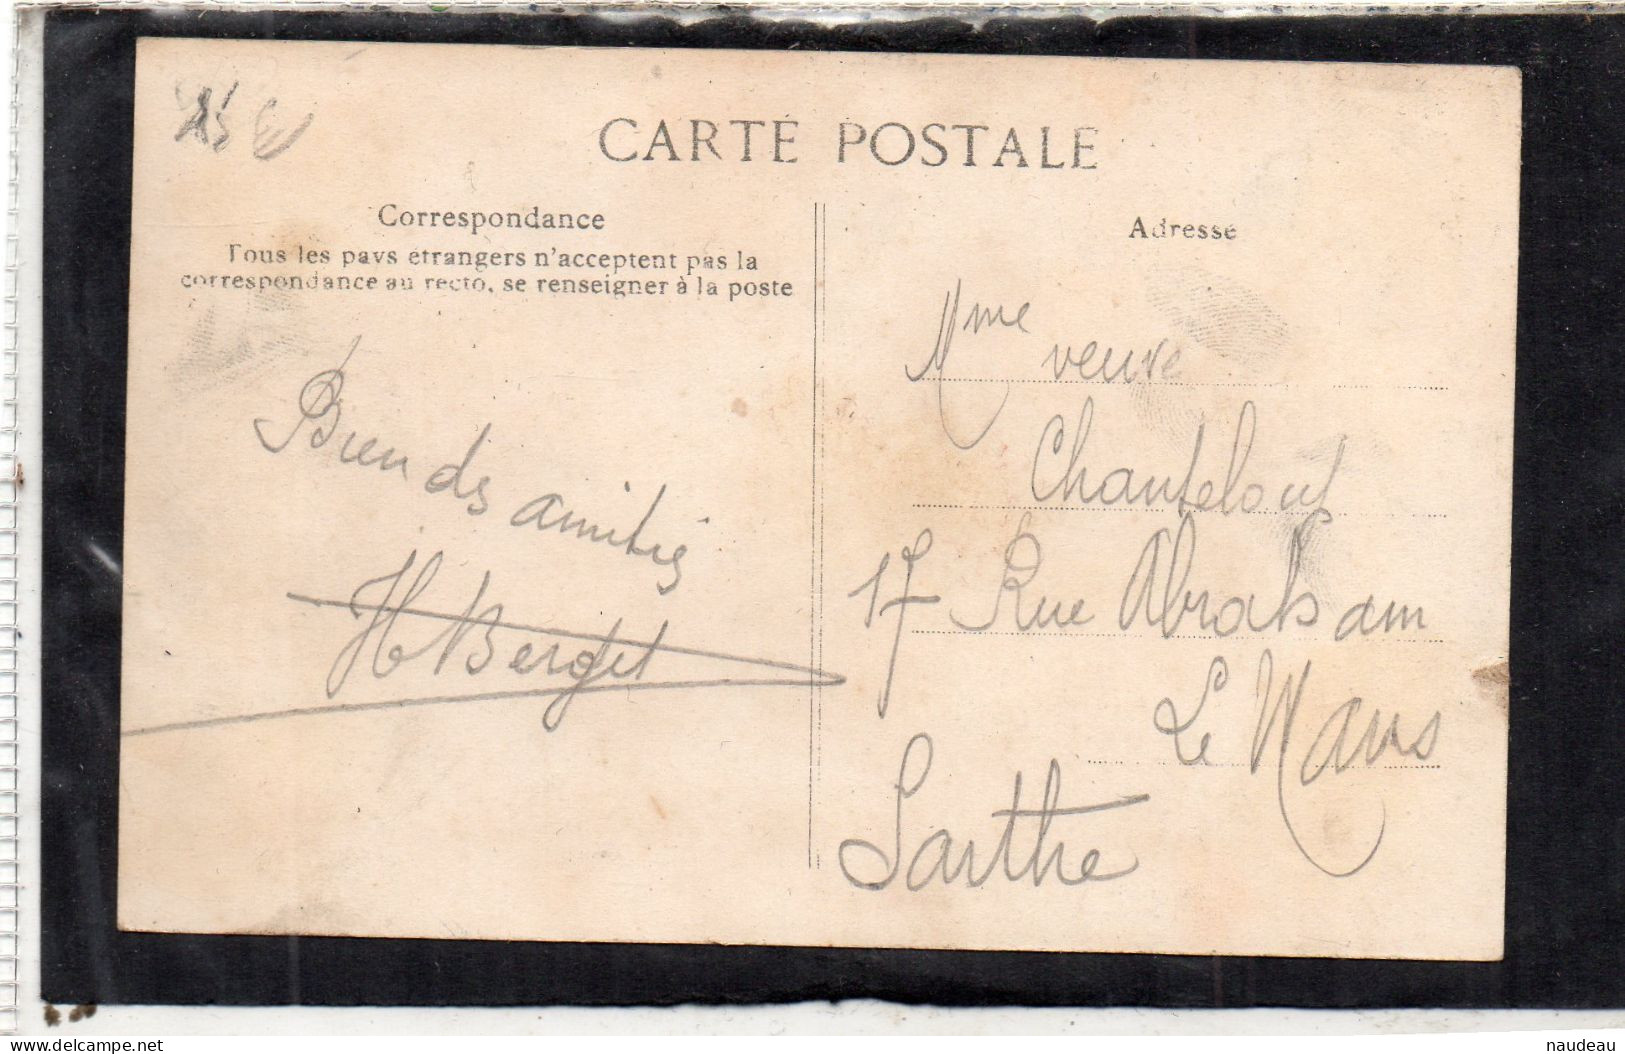 15 €
CARTE POSTALE
Correspondance
Tous les pays étrangers n'acceptent pas la
correspondance au recto, se renseigner à la poste
Bien des amitiés
H Berget
Adresse
Mme veuve
Chanteloup
17 Rue Abraham
Le Mans
Sarthe
delcampe.net
naudeau